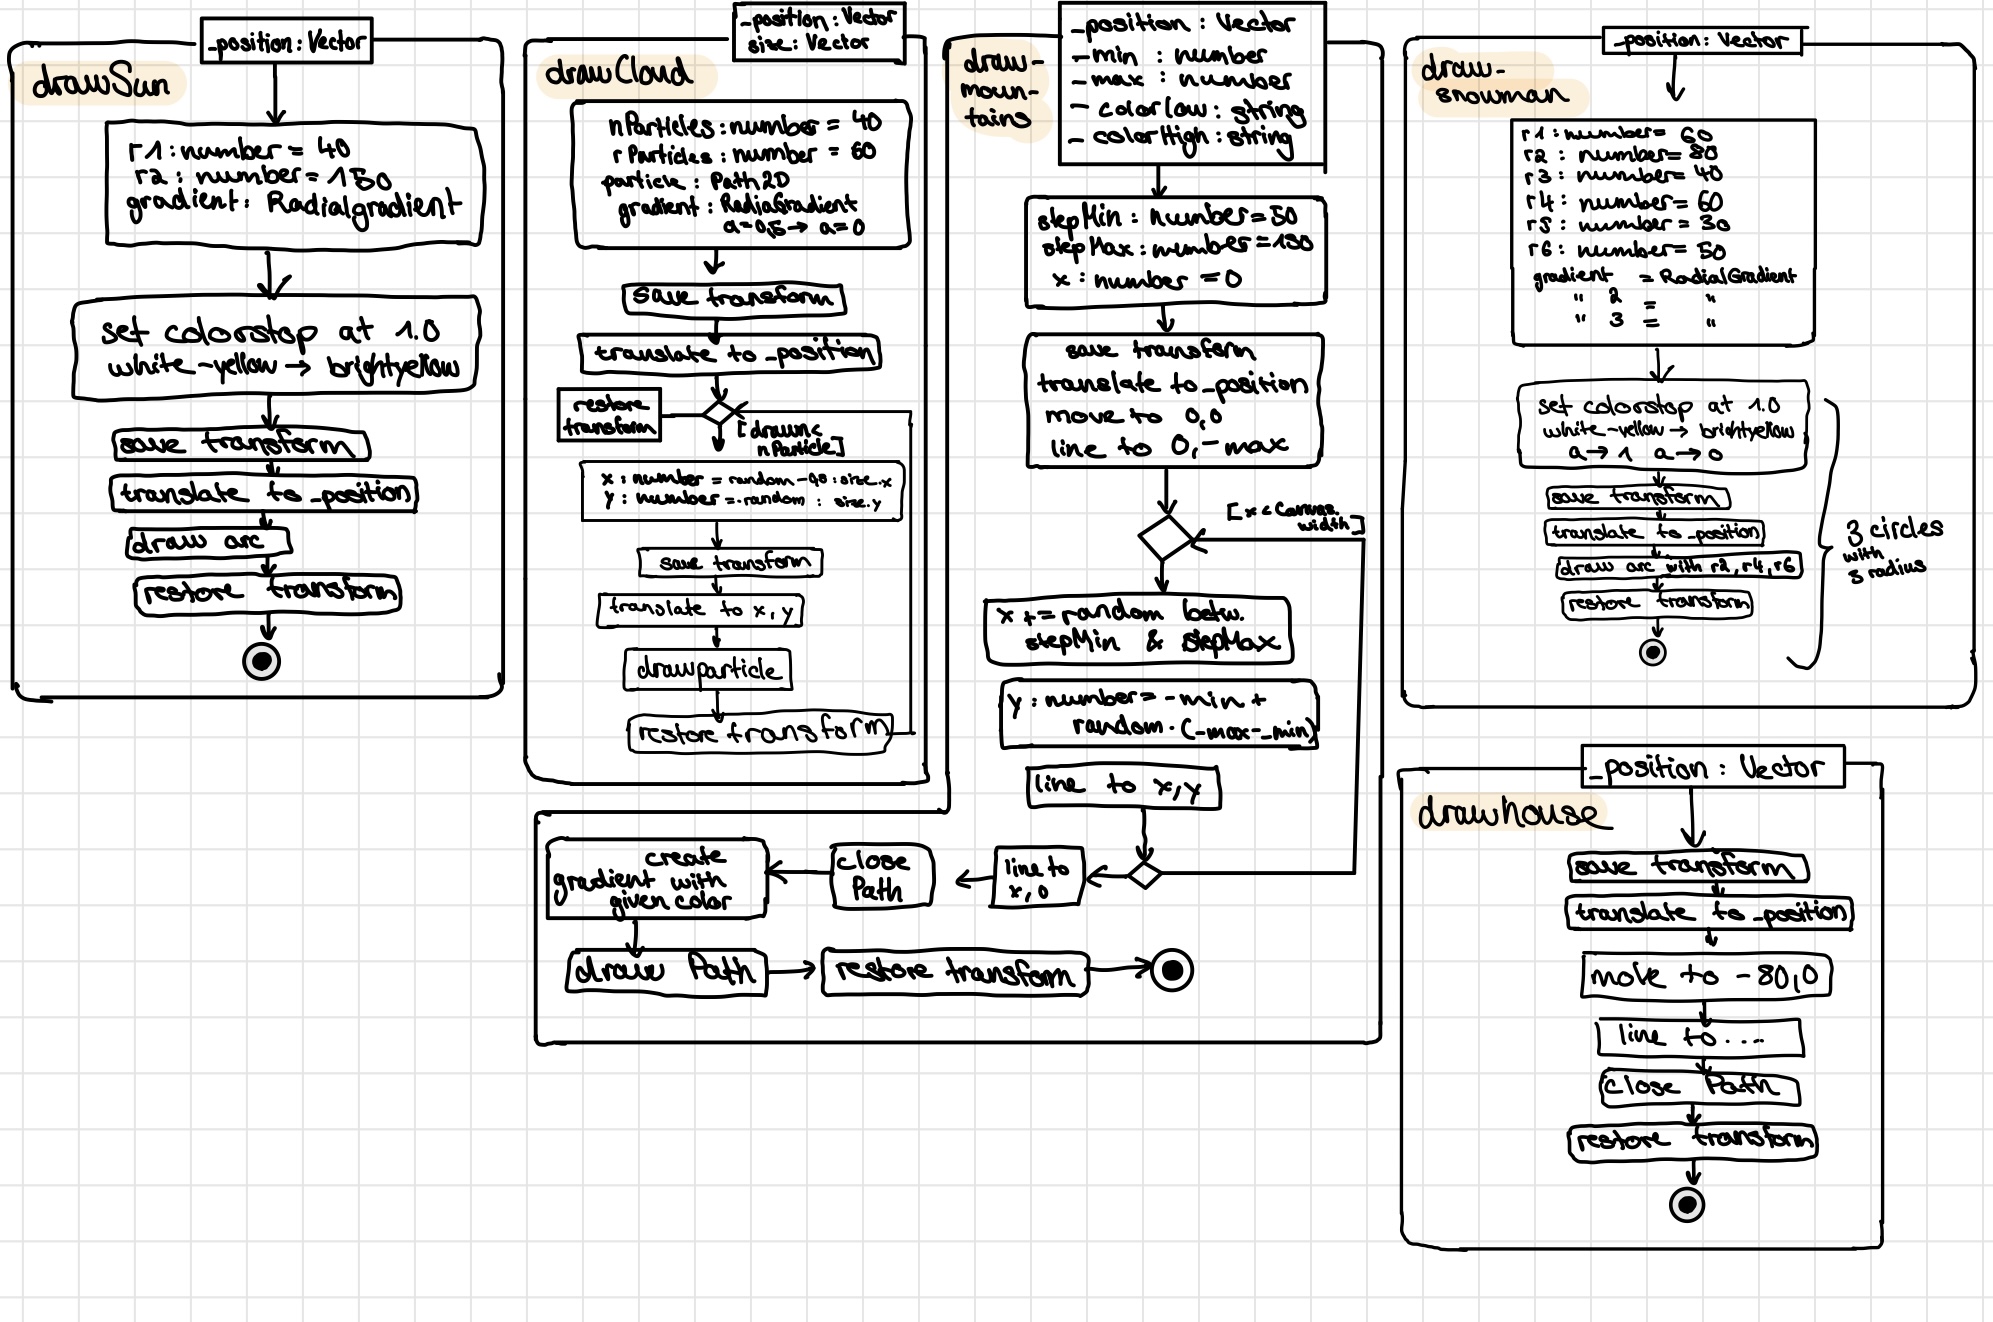 _position: Vector
drawSun
r1: number = 40
r2: number = 150
gradient: Radialgradient
set colorstop at 1.0
white-yellow → brightyellow
save transform
translate to _position
draw arc
restore transform
_position: Vector
size: Vector
drawCloud
nParticles: number = 40
rParticles: number = 60
particle: Path2D
gradient: RadialGradient
a=0,5 → a=0
save transform
translate to _position
restore
transform
[drawn<
nParticle]
x: number = random
y: number = random
save transform
translate to x,y
draw particle
restore transform
_position: Vector
-min : number
-max : number
- colorlow: string
- colorHigh: string
draw-
moun-
tains
stepMin: number=50
stepMax: number=150
x: number = 0
save transform
translate to _position
move to 0,0
line to 0,-max
[x < Canvas.
width]
x += random betw.
stepMin & stepMax
y: number= -min +
random · (-max-_min)
line to x,y
line to
x,0
close
Path
create
gradient with
given color
draw Path
restore transform
_position: Vector
draw-
snowman
r1: number= 60
r2: number= 80
r3: number= 40
r4: number= 60
r5: number = 30
r6: number= 50
gradient = RadialGradient
" 2 = "
" 3 = "
set colorstop at 1.0
white-yellow → brightyellow
a→1 a→0
save transform
translate to _position
draw arc with r2,r4,r6
restore transform
3 circles
with
radius
_position: Vector
drawhouse
save transform
translate to _position
move to -80,0
line to....
close Path
restore transform